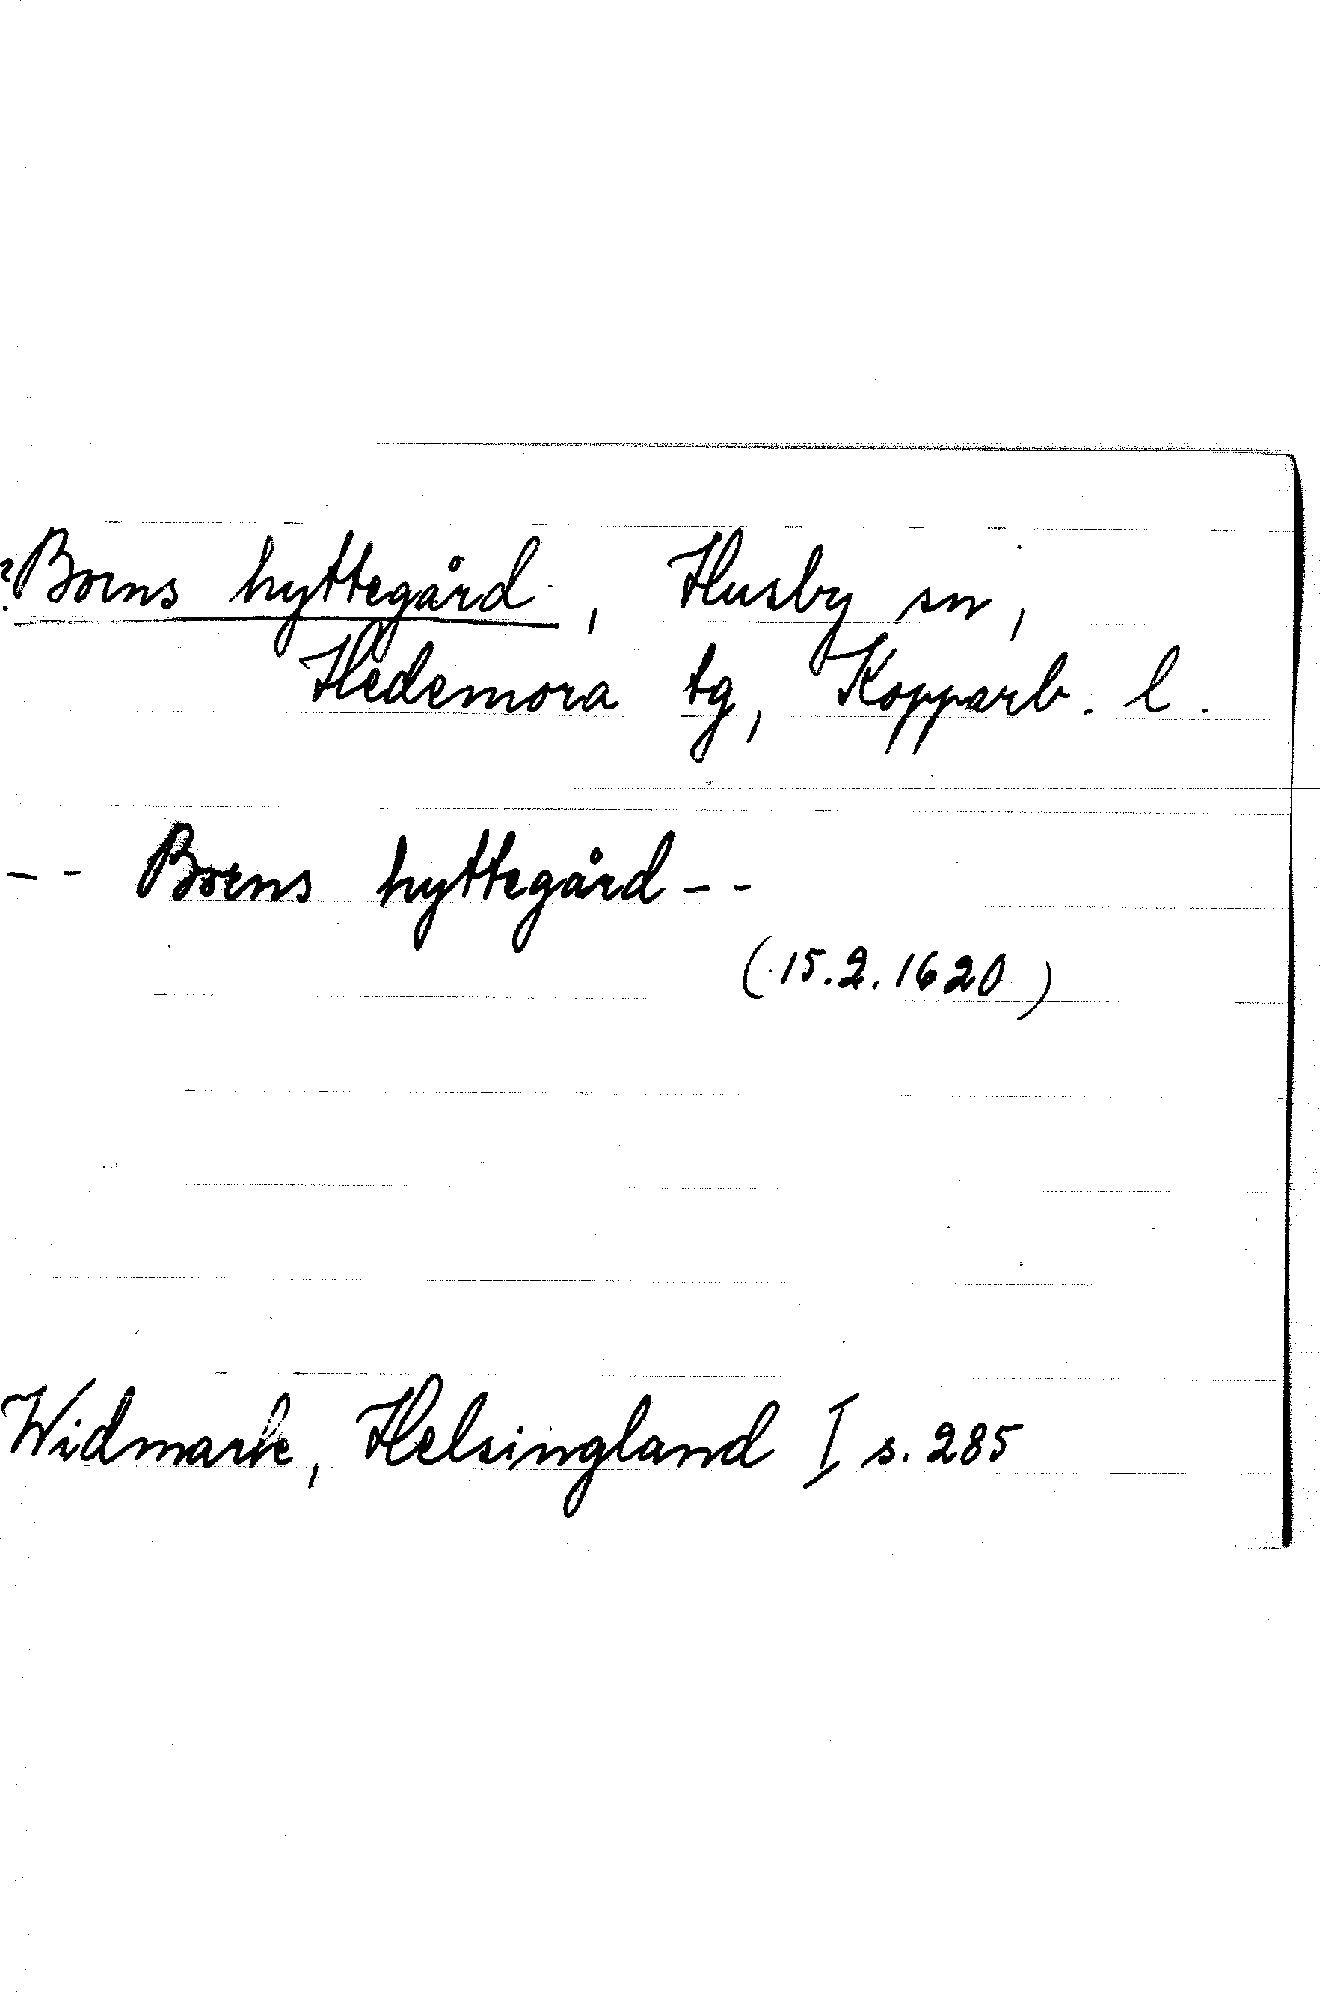 ?Borns hyttegård, Husby sn,
Hedemora tg, Kopparb. l.
-- Borns hyttegård --
(15.2.1620)
Widmark, Helsingland I s. 285